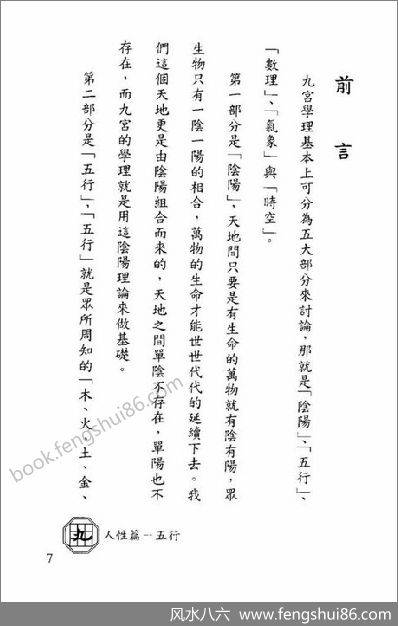 前言
九宮學理基本上可分為五大部分來討論，那就是「陰陽」、「五行」、
「數理」、「氣象」與「時空」。
第一部分是「陰陽」，天地間只要是有生命的萬物就有陰有陽，眾
生物只有一陰一陽的相合，萬物的生命才能世世代代的延續下去。我
們這個天地更是由陰陽組合而來的，天地之間單陰不存在，單陽也不
存在，而九宮的學理就是用這陰陽理論來做基礎。
第二部分是「五行」，「五行」就是眾所周知的「木、火、土、金、
九
人性篇－五行
7
book.fengshui86.com
风水八六 www.fengshui86.com